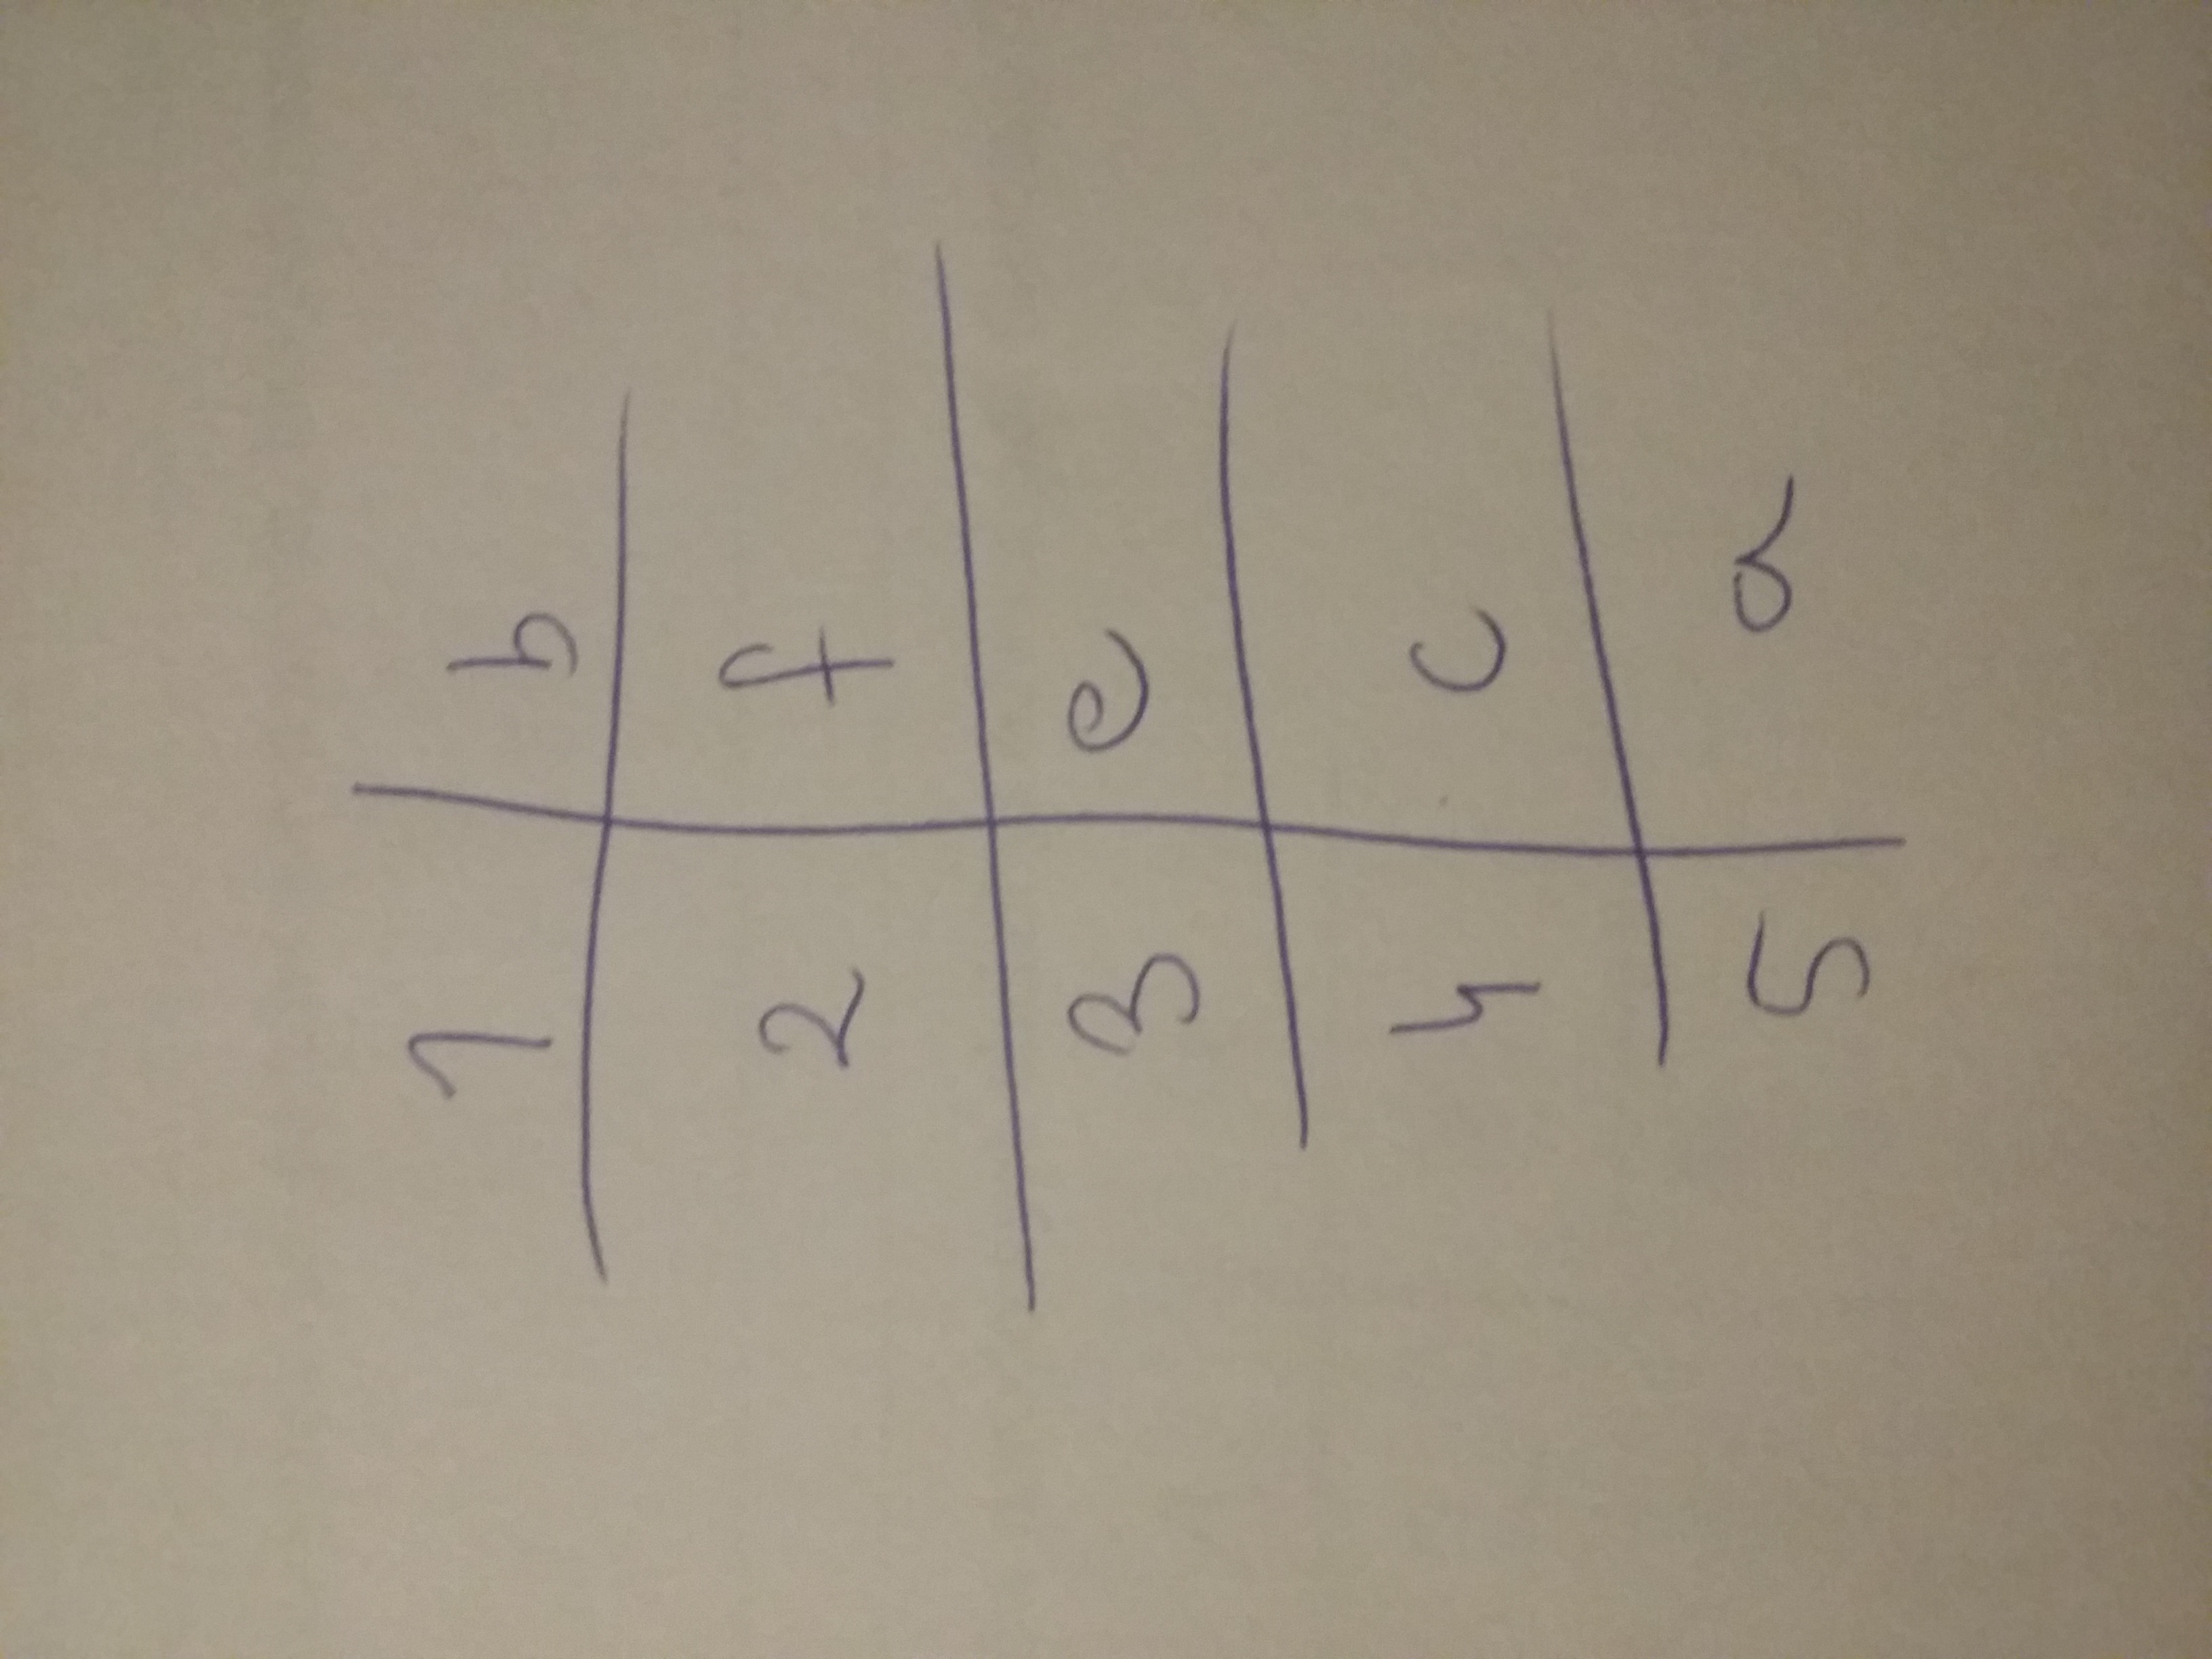 1 b
2 f
3 e
4 c
5 a